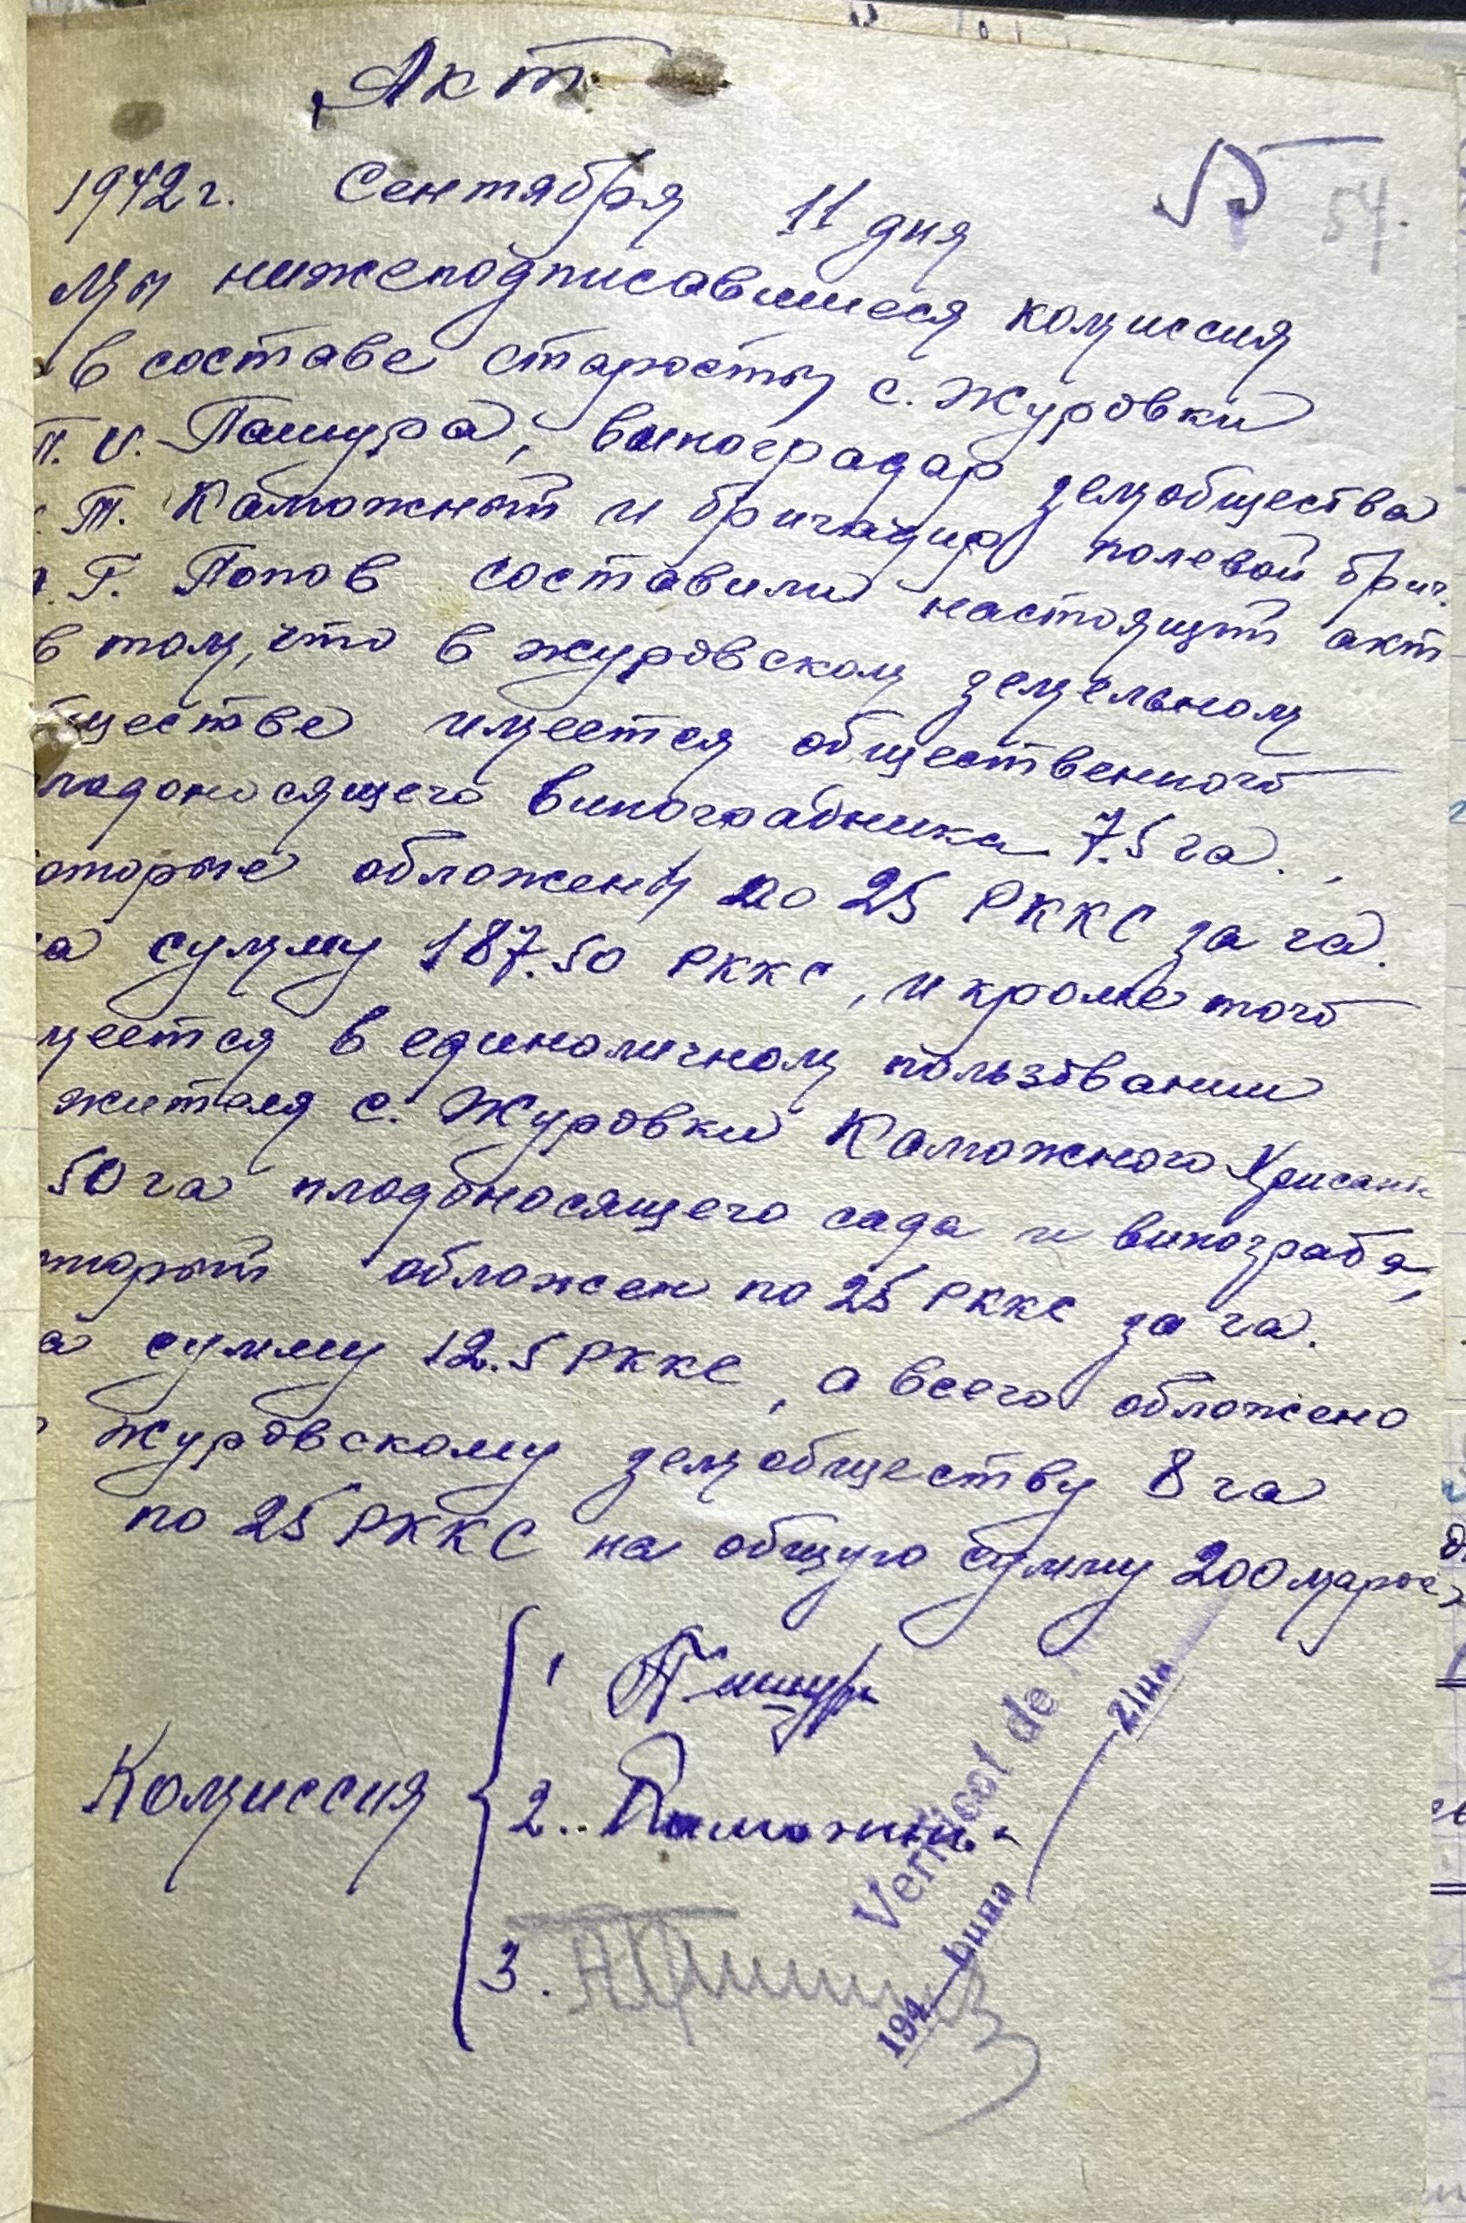 Акт
54.
1942 г. Сентября 11 дня
мы нижеподписавшиеся комиссия
в составе старосты с. Журовки
П. И. Пашура, виноградар земобщества
Т. Каможный и бригадир полевой бриг.
Г. Попов составили настоящий акт
в том, что в журовском земельном
ществе имеется общественного
ладоносящего виноградника 7.5 га.,
оторые обложены по 25 РККС за га.
а сумму 187.50 РККС, и кроме того
меется в единоличном пользовании
жителя с. Журовки Каможного Хрисан
50 га плодоносящего сада и винограда,
оторый обложен по 25 РККС за га.
а сумму 12.5 РККС, а всего обложено
Журовскому земобществу 8 га
по 25 РККС на общую сумму 200 марок
Комиссия
1
2.
3.
Verificat de
194 Luna Ziua